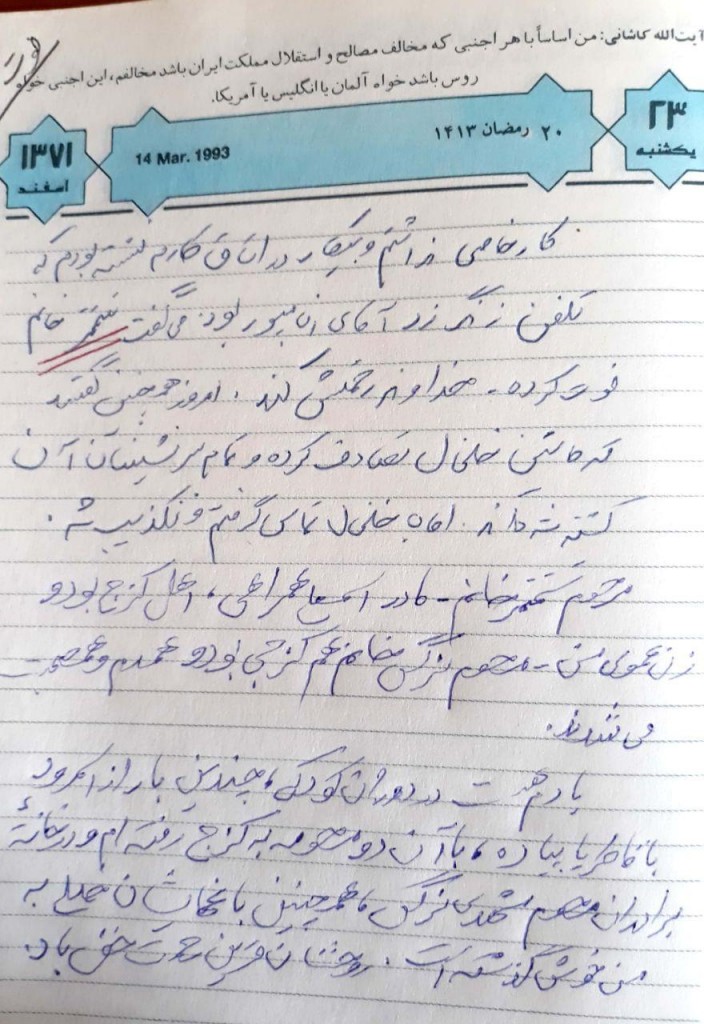 آیت‌الله کاشانی: من اساساً با هر اجنبی که مخالف مصالح و استقلال مملکت ایران باشد مخالفم، این اجنبی خواه
روس باشد خواه آلمان یا انگلیس یا آمریکا.
۲۳ یکشنبه
۲۰ رمضان ۱۴۱۳
14 Mar. 1993
۱۳۷۱ اسفند
کار خاصی نداشتم و بیکار در اتاق کارم نشسته بودم که
تلفن زنگ زد آقای بود. می‌گفت خانم
فوت کرده - خداوند رحمتش کند. امروز همچنین گفتند
که ماشین خلخال تصادف کرده و تمام سرنشینان آن
کشته شده‌اند. اما با خلخال تماس گرفتم و تکذیب شد.
مرحوم خانم - مادر اهل کزج بود و
زن عموی من - مرحوم نرگس خانم هم کزجی بود و همدم و هم‌صحبت
می‌شدند.
یادم هست در دوران کودکی، چندین بار از
با قاطر یا پیاده، با آن دو مرحومه به کزج رفته‌ام و در خانهٔ
برادران مرحوم مشهدی نرگس، همچنین خیلی به
من خوش گذشته است. روحشان قرین رحمت حق باد.